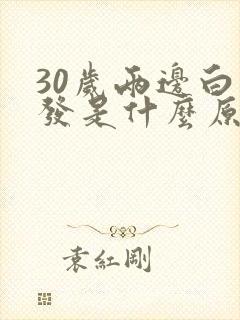 30歲兩邊白
發是什麼原
袁紅剛